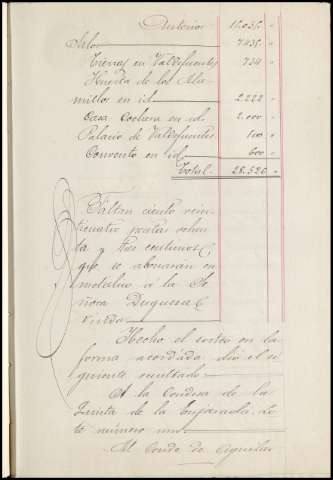 Anterior 15.035 "
Silos 7.435 "
Tierras en Valdefuentes 734 "
Huerta de los Ala-
millos en id. 2.222 "
Casa Cochera en id. 2.000 "
Palacio de Valdefuentes 100 "
Convento en id. 600 "
Total 28.526 "
Faltan ciento vein-
ticuatro pesetas ochen-
ta y tres centimos
que se abonarán en
metalico á la Se-
ñora Duquesa
viuda
Hecho el sorteo en la
forma acordada dió el si-
guiente resultado
A la Condesa de la
Quinta de la Enjarada, Lo-
te número uno
Al Conde de Aguilar